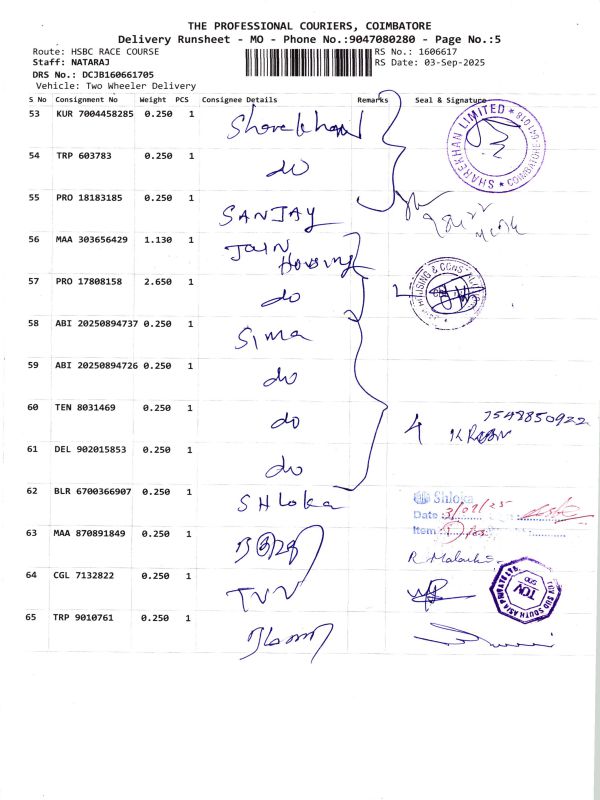 THE PROFESSIONAL COURIERS, COIMBATORE
Delivery Runsheet - MO - Phone No.:9047080280 - Page No.:5
Route: HSBC RACE COURSE
RS No.: 1606617
Staff: NATARAJ
RS Date: 03-Sep-2025
DRS No.: DCJB160661705
Vehicle: Two Wheeler Delivery
S No Consignment No Weight PCS Consignee Details Remarks Seal & Signature
53 KUR 7004458285 0.250 1 Sharekhan
SHAREKHAN LIMITED * COIMBATORE-641 018 *
54 TRP 603783 0.250 1 do
55 PRO 18183185 0.250 1 SANJAY
56 MAA 303656429 1.130 1 Jain Housing
57 PRO 17808158 2.650 1 do
HOUSING & CONS
58 ABI 20250894737 0.250 1 Sima
59 ABI 20250894726 0.250 1 do
60 TEN 8031469 0.250 1 do
4 7548850922
61 DEL 902015853 0.250 1 do
62 BLR 6700366907 0.250 1 SHloka
Shloka
Date :3/09/25
Item :
63 MAA 870891849 0.250 1
R
64 CGL 7132822 0.250 1 TVV
TUV SUD SOUTH ASIA PRIVATE LTD.
TUV
SUD
65 TRP 9010761 0.250 1